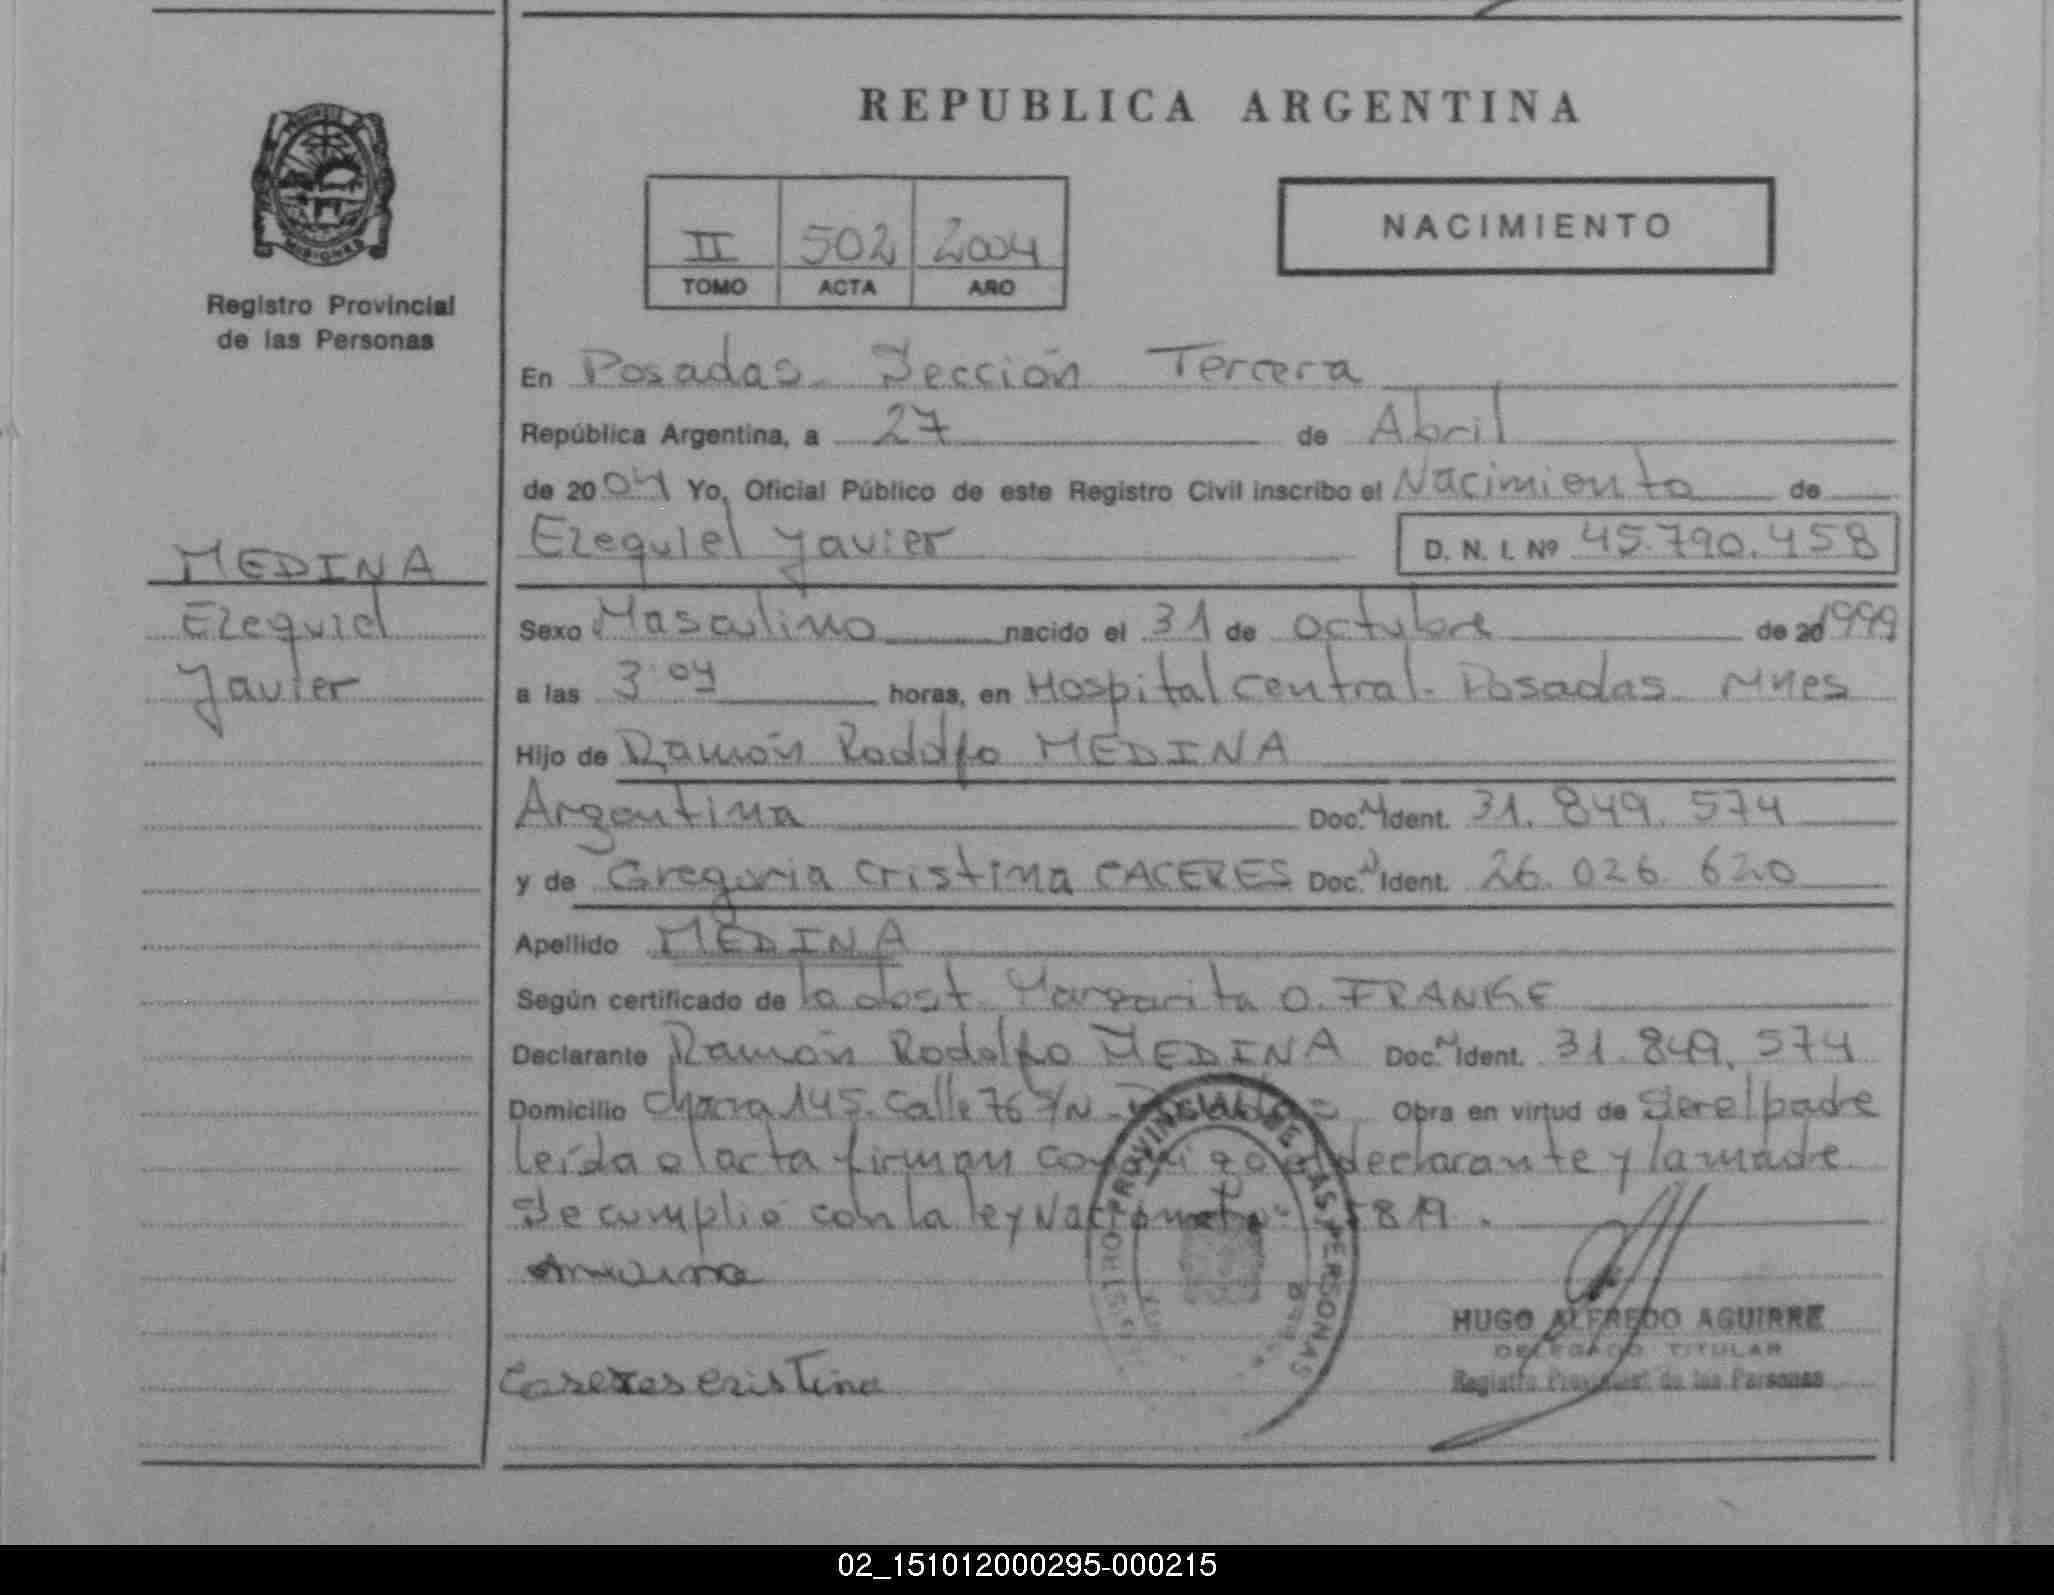 REPUBLICA ARGENTINA
MISIONES
Registro Provincial
de las Personas
II 502 2004
TOMO ACTA AÑO
NACIMIENTO
En Posadas. Sección Tercera
República Argentina, a 27 de Abril
de 2004 Yo, Oficial Público de este Registro Civil inscribo el Nacimiento de
Ezequiel Javier D. N. I. Nº 45.790.458
MEDINA
Ezequiel
Javier
Sexo Masculino nacido el 31 de octubre de 20 1999
a las 3 04 horas, en Hospital Central. Posadas Mnes
Hijo de Ramón Rodolfo MEDINA
Argentina Doc. Ident. 31. 849. 574
y de Gregoria Cristina CACERES Doc. Ident. 26. 026. 620
Apellido MEDINA
Según certificado de la obst. Margarita O. FRANKE
Declarante Ramón Rodolfo MEDINA Doc. Ident. 31. 849. 574
Domicilio Chacra 145. Calle 76 S/N Obra en virtud de Ser el padre
leída el acta firman declarante y la madre
Se cumplió con la ley 819.
PROVINCIAL DE LAS PERSONAS
HUGO ALFREDO AGUIRRE
DELEGADO TITULAR
Registro Provincial de las Personas
Caseres Cristina
02_151012000295-000215